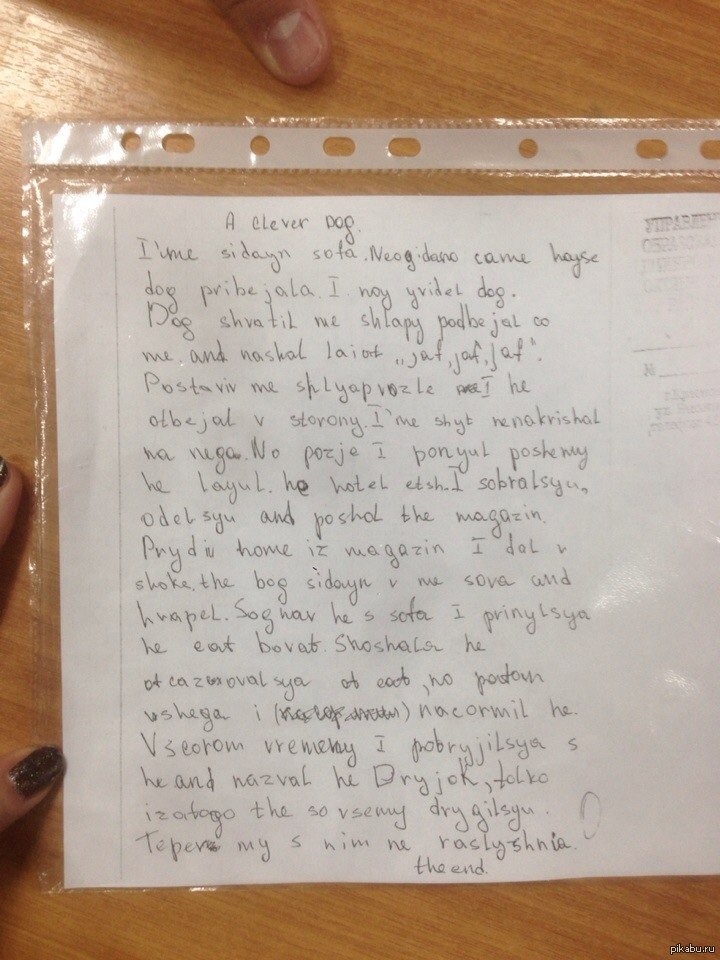 A clever Dog.
I'me sidayn sofa. Neogidano came hayse
dog pribejala. I noy yvidel dog.
Dog shvatil me shlapy podbejal co
me and nashal laiat „jaf, jaf, jaf".
Postaviv me shlyap vozle I he
otbejal v storony. I'me shyt nenakrishal
na nega. No pozje I ponyul poshemy
he layul. he hotel etsh. I sobralsyu,
odelsyu and poshol the magazin.
Prydiv home iz magazin I dal v
shoke. the bog sidayn v me sova and
hrapel. Sognav he s sofa I prinylsya
he eat bovat. Shoshala he
otcazovalsya ot eat, no potom
vshega i nacormil he.
Vscorom vremeny I pobryjilsya s
he and nazval he Dryjok, tolko
izatogo the sovsemy drygilsyu.
Teper my s nim ne raslyshnia.
the end.
УПРАВЛЕН
№
pikabu.ru